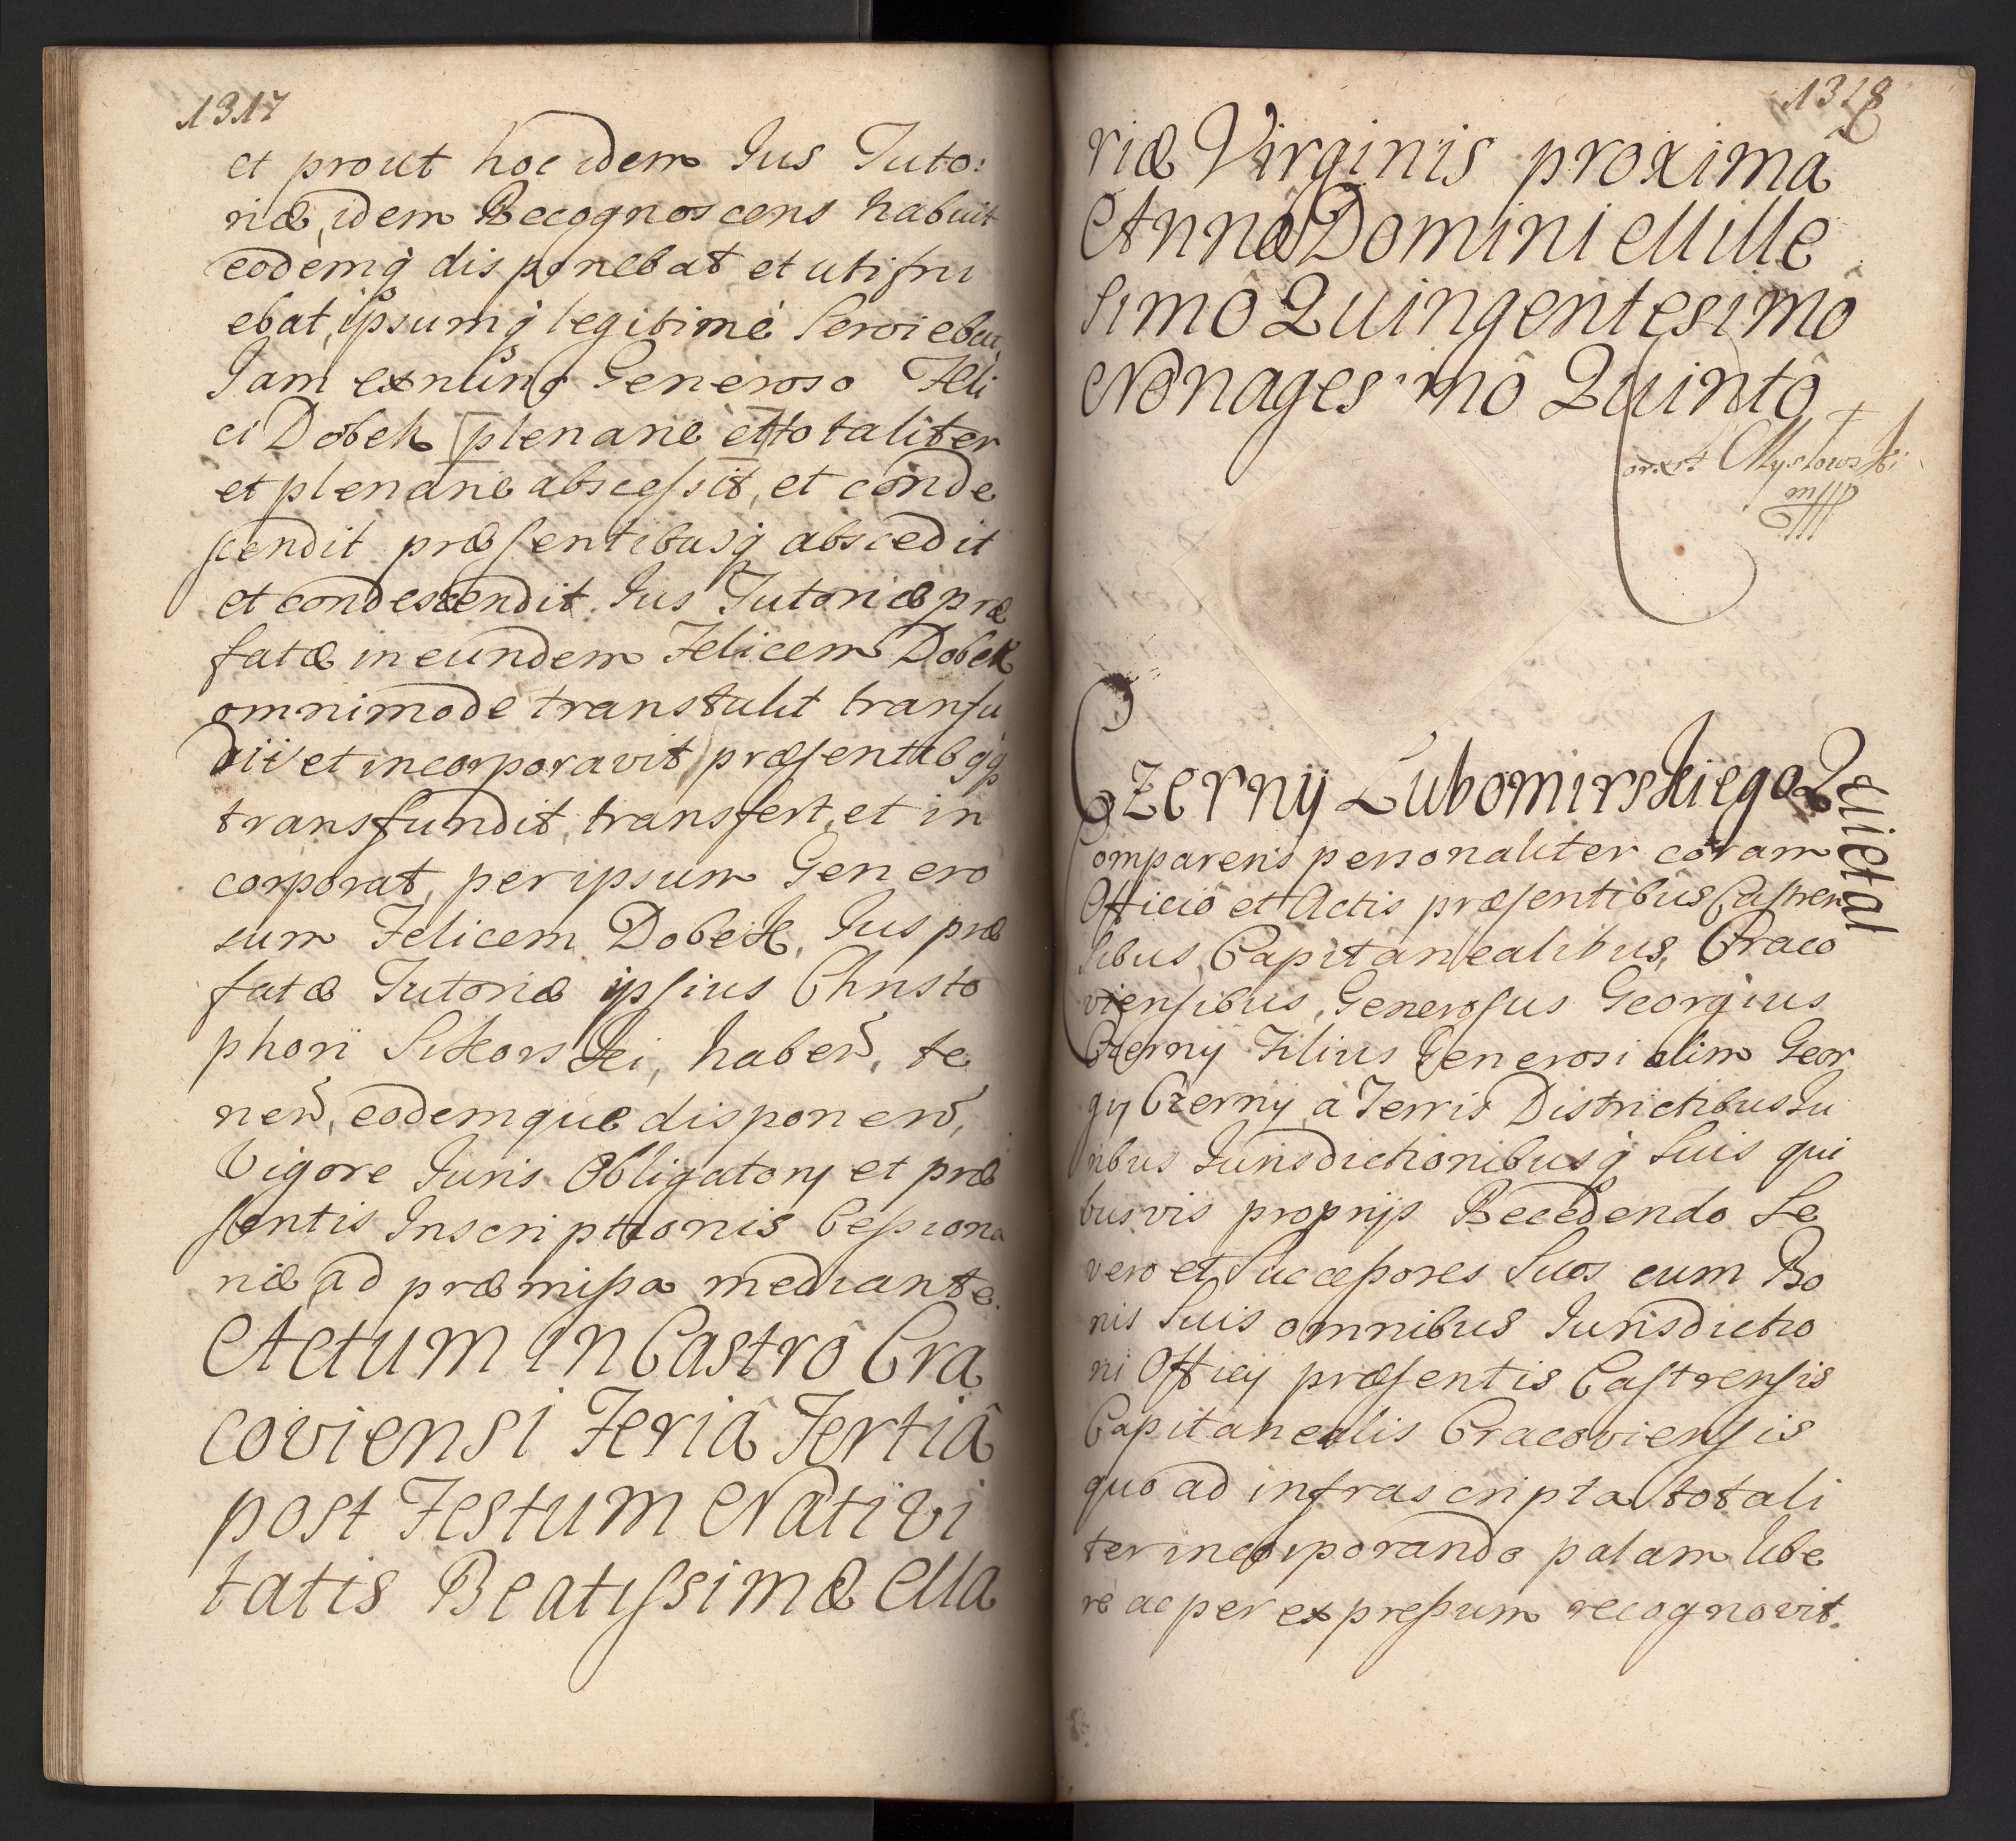 1317
et prout hoc idem Jus Tuto:
riæ, idem Recognoscens habuit
eodemq̀ disponebat et utifru
ebat, ipsumq̀ legitimè Serviebat,
Jam ex nunc Generoso Feli
ci Dobek plenarie et totaliter
et plenarie abscessit, et conde
scendit præsentibusq̀ abscedit
et condescendit. Jus Tutoriæ præ
fatæ in eundem Felicem Dobek
omnimode transtulit transfu
dit et incorporavit præsentibqq̀
transfundit, transfert, et in
corporat, per ipsum Genero
sum Felicem Dobek, Jus præ
fatæ Tutoriæ ipsius Christo
phori Sikorskei, haben, te
nen, eodemque disponen,
Vigore Juris Obligatorij et præ
sentis Inscriptionis Cessiona
riæ ad præmissa mediante.
Actum in Castrô Cra
coviensi Feriâ Tertiâ
post Festum Nativi
tatis Beatissimæ Ma
1318
riæ Virginis proximâ
Annô Domini Mille
simô Quingentesimô
Nonagesimô Quintô
Czernij Lubomirskiego Quietat
Comparens personaliter coram
Officiô et Actis præsentibus Castren
sibus, Capitanealibus, Craco
viensibus, Generosus Georgius
Czernij Filius Generosi olim Geor
gij Czernij, à Terris Districtibus Ju
ribus Jurisdictionibusq̀ Suis qui
busvis proprijs Recedendo Se
vero et Successores Suos cum Bo
nis Suis omnibus Jurisdictio
ni Officij præsentis Castrensis
Capitanealis Cracoviensis
quo ad infrascripta totali
ter incorporando palam libe
re ac per expressum recognovit.